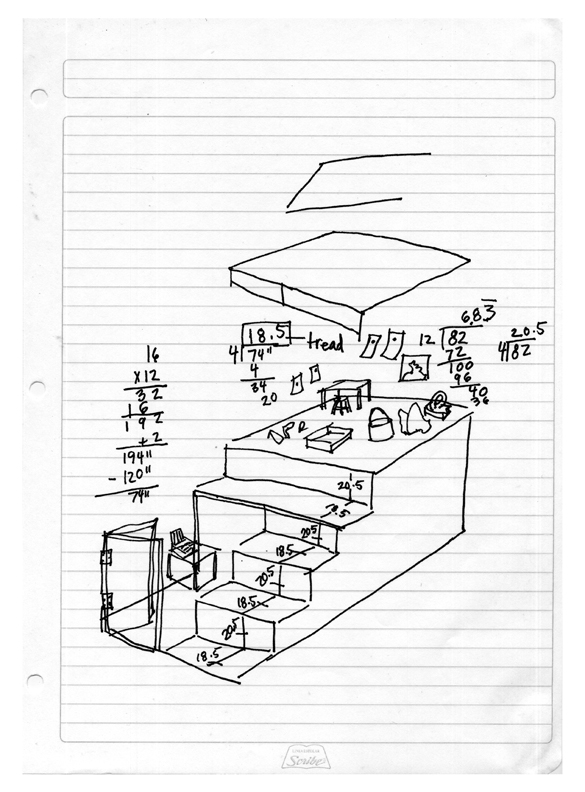 6.8 3̅
20.5
18.5
tread
12
82
4
82
4
74"
72
100
16
4
96
x12
34
40
32
20
36
16
192
+2
194"
- 120"
74"
20.5
18.5
20.5
18.5
20.5
18.5
20.5
18.5
Scribe